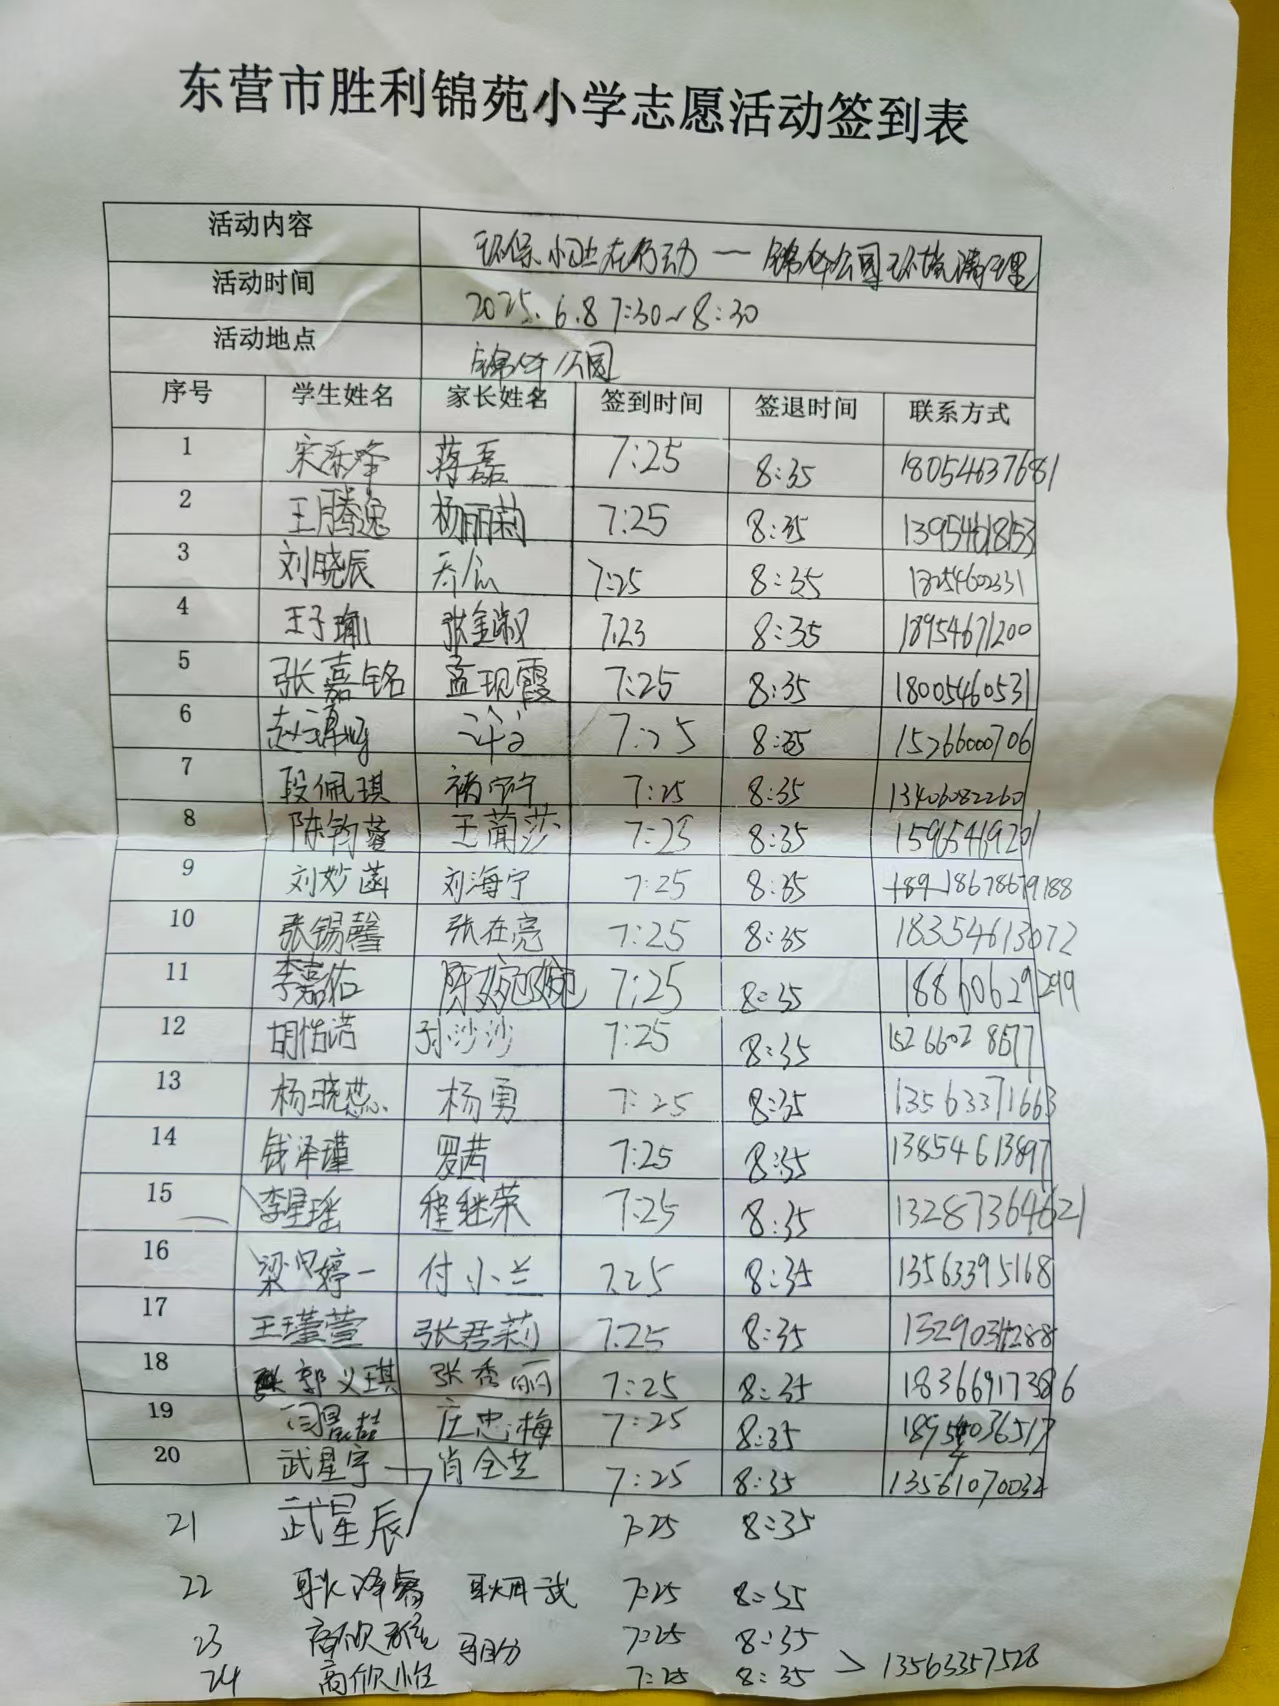 东营市胜利锦苑小学志愿活动签到表
活动内容 环保小卫士在行动——锦华公园环境清理
活动时间 2025.6.8 7:30~8:30
活动地点 锦华公园
序号 学生姓名 家长姓名 签到时间 签退时间 联系方式
1 宋添峰 蒋磊 7:25 8:35 18054637681
2 王腾逸 杨丽莉 7:25 8:35 13954618153
3 刘晓辰 7:25 8:35 18254602331
4 王子瑜 张金淑 7:23 8:35 18954671200
5 张嘉铭 孟现霞 7:25 8:35 18005460531
6 7:25 8:35 15266000706
7 段佩琪 褚宁宁 7:25 8:35 13406082260
8 陈钧萱 王蔺莎 7:25 8:35 15965419201
9 刘妙菡 刘海宁 7:25 8:35 18678679188
10 张锡馨 张在亮 7:25 8:35 18354613072
11 李嘉佑 陈婉婉 7:25 8:35 18860629299
12 胡怡诺 孙沙沙 7:25 8:35 15266028577
13 杨晓蕊 杨勇 7:25 8:35 13563371663
14 钱泽瑾 罗茜 7:25 8:35 13854613897
15 李星瑶 程继荣 7:25 8:35 13287364621
16 梁婷一 付小兰 7:25 8:35 13563395168
17 王瑾萱 张君莉 7:25 8:35
18 郭义琪 张秀丽 7:25 8:35
19 庄忠梅 7:25 8:35
20 武星宇 肖全芝 7:25 8:35 13561070032
21 武星辰 7:25 8:35
22 耿泽睿 耿用武 7:25 8:35
23 高欣 7:25 8:35
24 高欣怡 7:25 8:35 13563357528